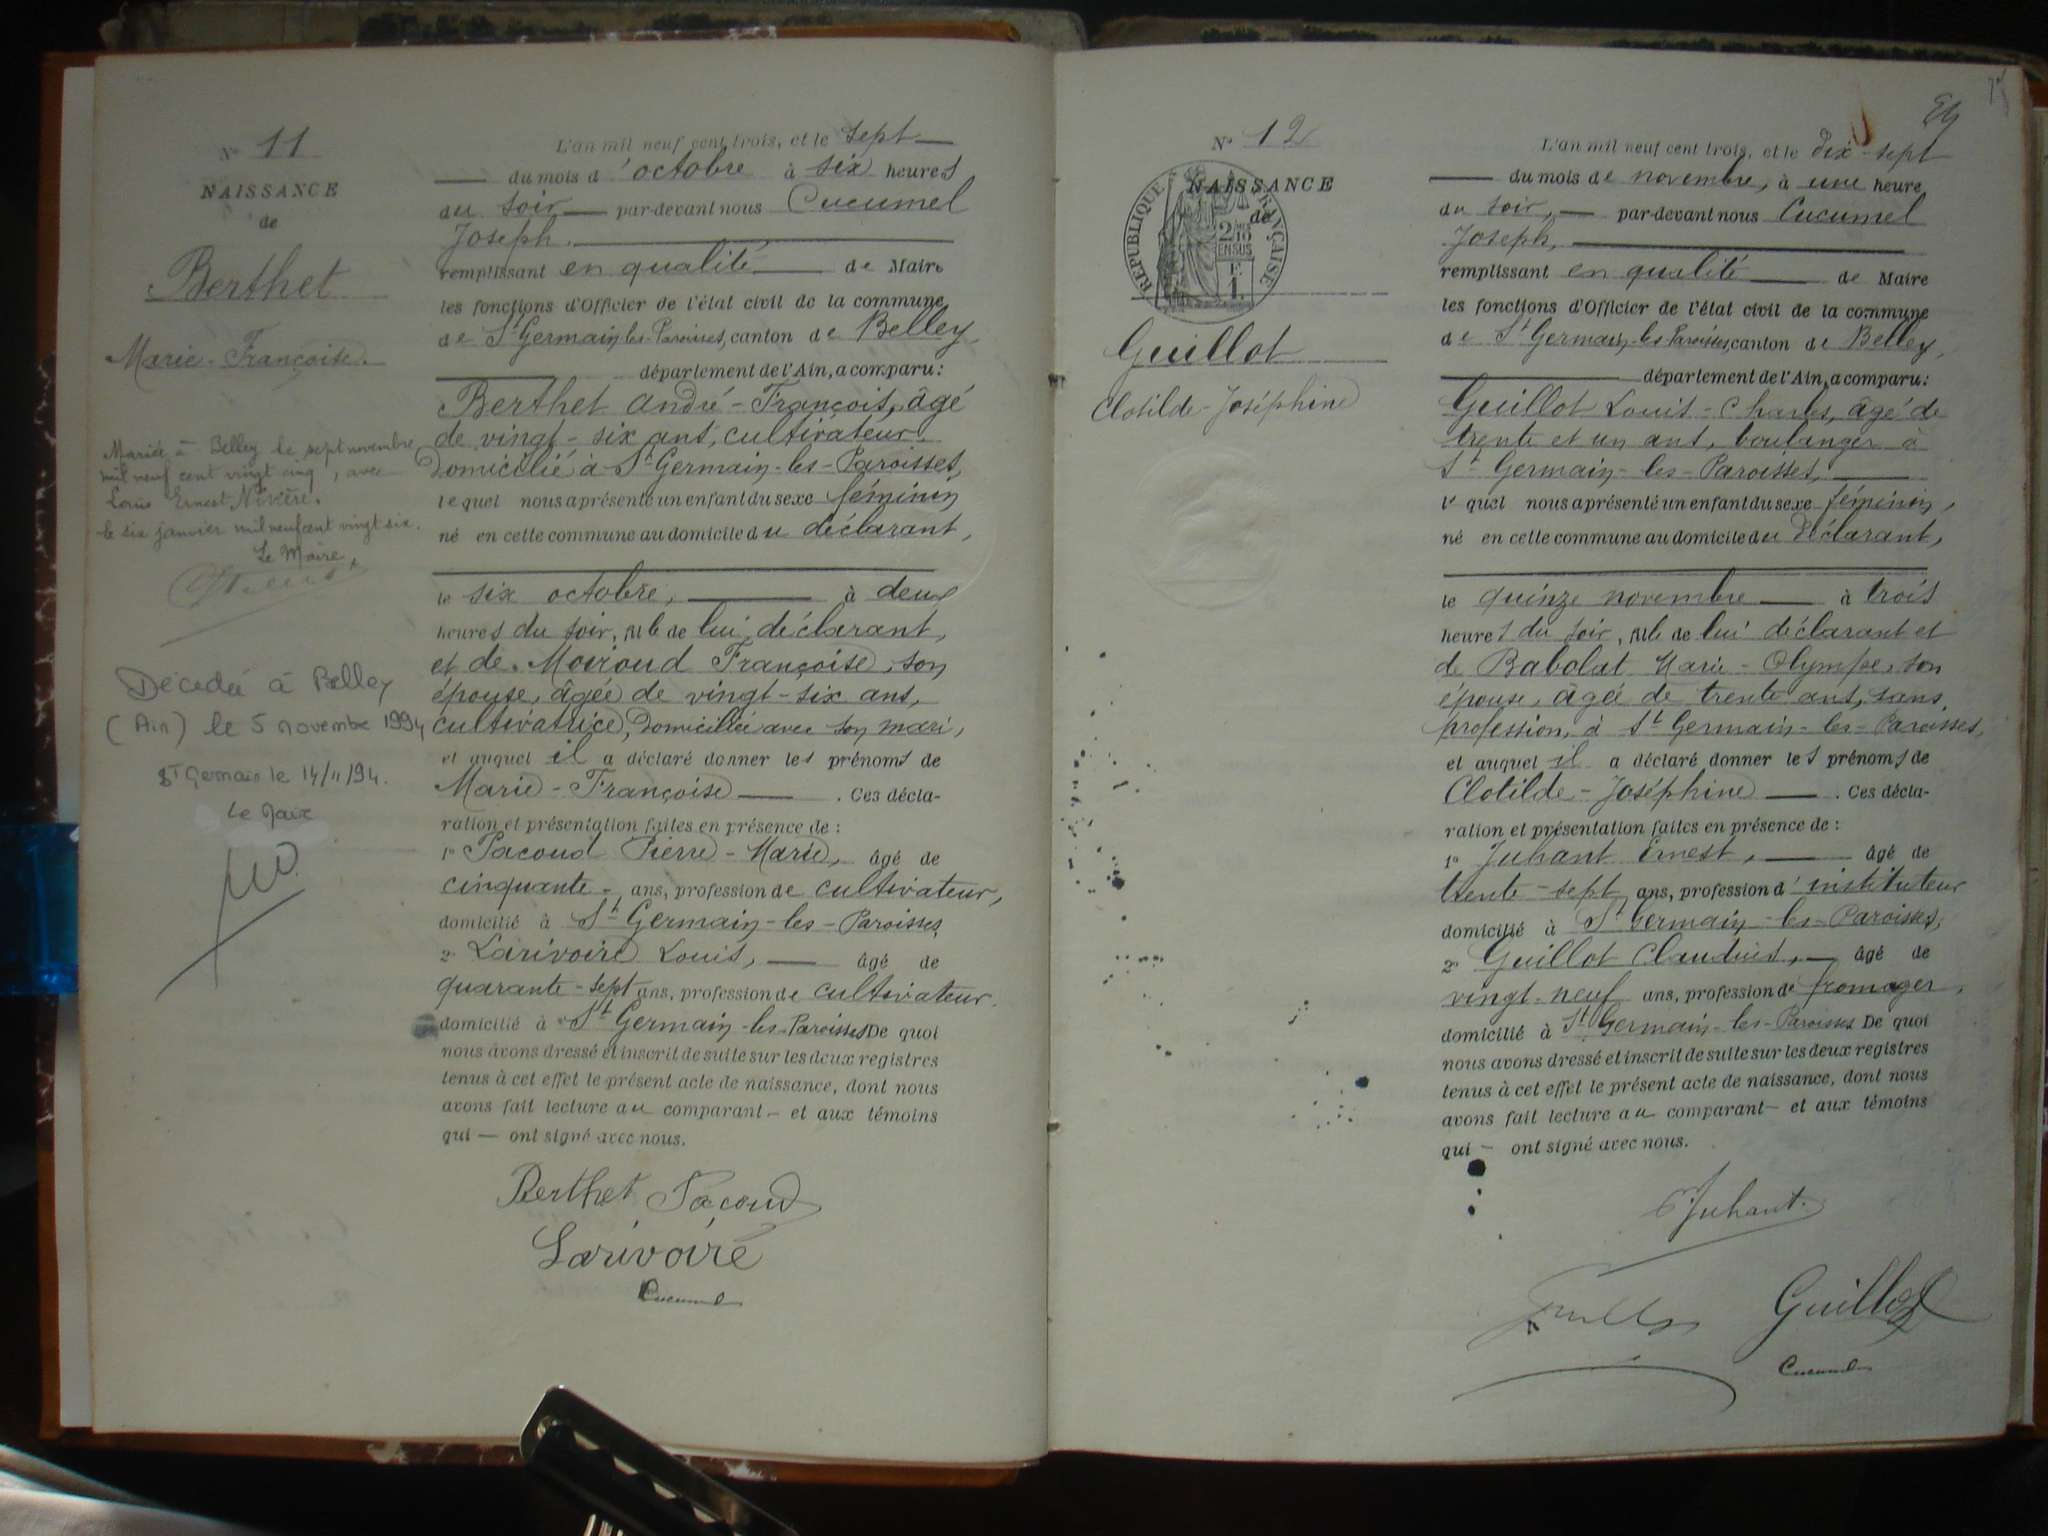 N° 11
NAISSANCE
de
Berthet
Marie-Françoise.
Mariée à Belley le sept novembre
mil neuf cent vingt cinq, avec
Louis Ernest Nivière.
le six janvier mil neuf cent vingt six.
Le Maire,
Décédée à Belley
(Ain) le 5 novembre 1994
St Germain le 14/11/94.
Le Maire
L'an mil neuf cent trois, et le sept
du mois d'octobre à six heures
du soir par-devant nous Cucumel
Joseph.
remplissant en qualité de Maire
les fonctions d'Officier de l'état civil de la commune
de St Germain-les-Paroisses, canton de Belley,
département de l'Ain, a comparu:
Berthet André-François, âgé
de vingt-six ans, cultivateur,
domicilié à St Germain-les-Paroisses,
lequel nous a présenté un enfant du sexe féminin
né en cette commune au domicile du déclarant,
le six octobre, à deux
heures du soir, fille de lui, déclarant,
et de Moiroud Françoise, son
épouse, âgée de vingt-six ans,
cultivatrice, domiciliée avec son mari,
et auquel il a déclaré donner les prénoms de
Marie-Françoise. Ces décla-
ration et présentation faites en présence de :
1° Pacoud Pierre-Marie, âgé de
cinquante ans, profession de cultivateur,
domicilié à St Germain-les-Paroisses,
2° Larivoire Louis, âgé de
quarante-sept ans, profession de cultivateur.
domicilié à St Germain-les-Paroisses De quoi
nous avons dressé et inscrit de suite sur les deux registres
tenus à cet effet le présent acte de naissance, dont nous
avons fait lecture au comparant et aux témoins
qui — ont signé avec nous.
Berthet Pacoud
Larivoire
Cucumel
N° 12
NAISSANCE
de
RÉPUBLIQUE FRANÇAISE
2/10
EN SUS
F.
1.
Guillot
Clotilde-Joséphine
L'an mil neuf cent trois, et le dix-sept
du mois de novembre, à une heure
du soir, par-devant nous Cucumel
Joseph,
remplissant en qualité de Maire
les fonctions d'Officier de l'état civil de la commune
de St Germain-les-Paroisses, canton de Belley,
département de l'Ain, a comparu:
Guillot Louis-Charles, âgé de
trente et un ans, boulanger à
St Germain-les-Paroisses,
lequel nous a présenté un enfant du sexe féminin,
né en cette commune au domicile du déclarant,
le quinze novembre à trois
heures du soir, fille de lui déclarant et
de Babolat Marie-Olympe, son
épouse, âgée de trente ans, sans
profession, à St Germain-les-Paroisses,
et auquel il a déclaré donner les prénoms de
Clotilde-Joséphine. Ces décla-
ration et présentation faites en présence de :
1° Juhant Ernest, âgé de
trente-sept ans, profession d'instituteur
domicilié à St Germain-les-Paroisses,
2° Guillot Claudius, âgé de
vingt-neuf ans, profession de fromager,
domicilié à St Germain-les-Paroisses De quoi
nous avons dressé et inscrit de suite sur les deux registres
tenus à cet effet le présent acte de naissance, dont nous
avons fait lecture au comparant — et aux témoins
qui — ont signé avec nous.
E Juhant.
Guillot
Cucumel